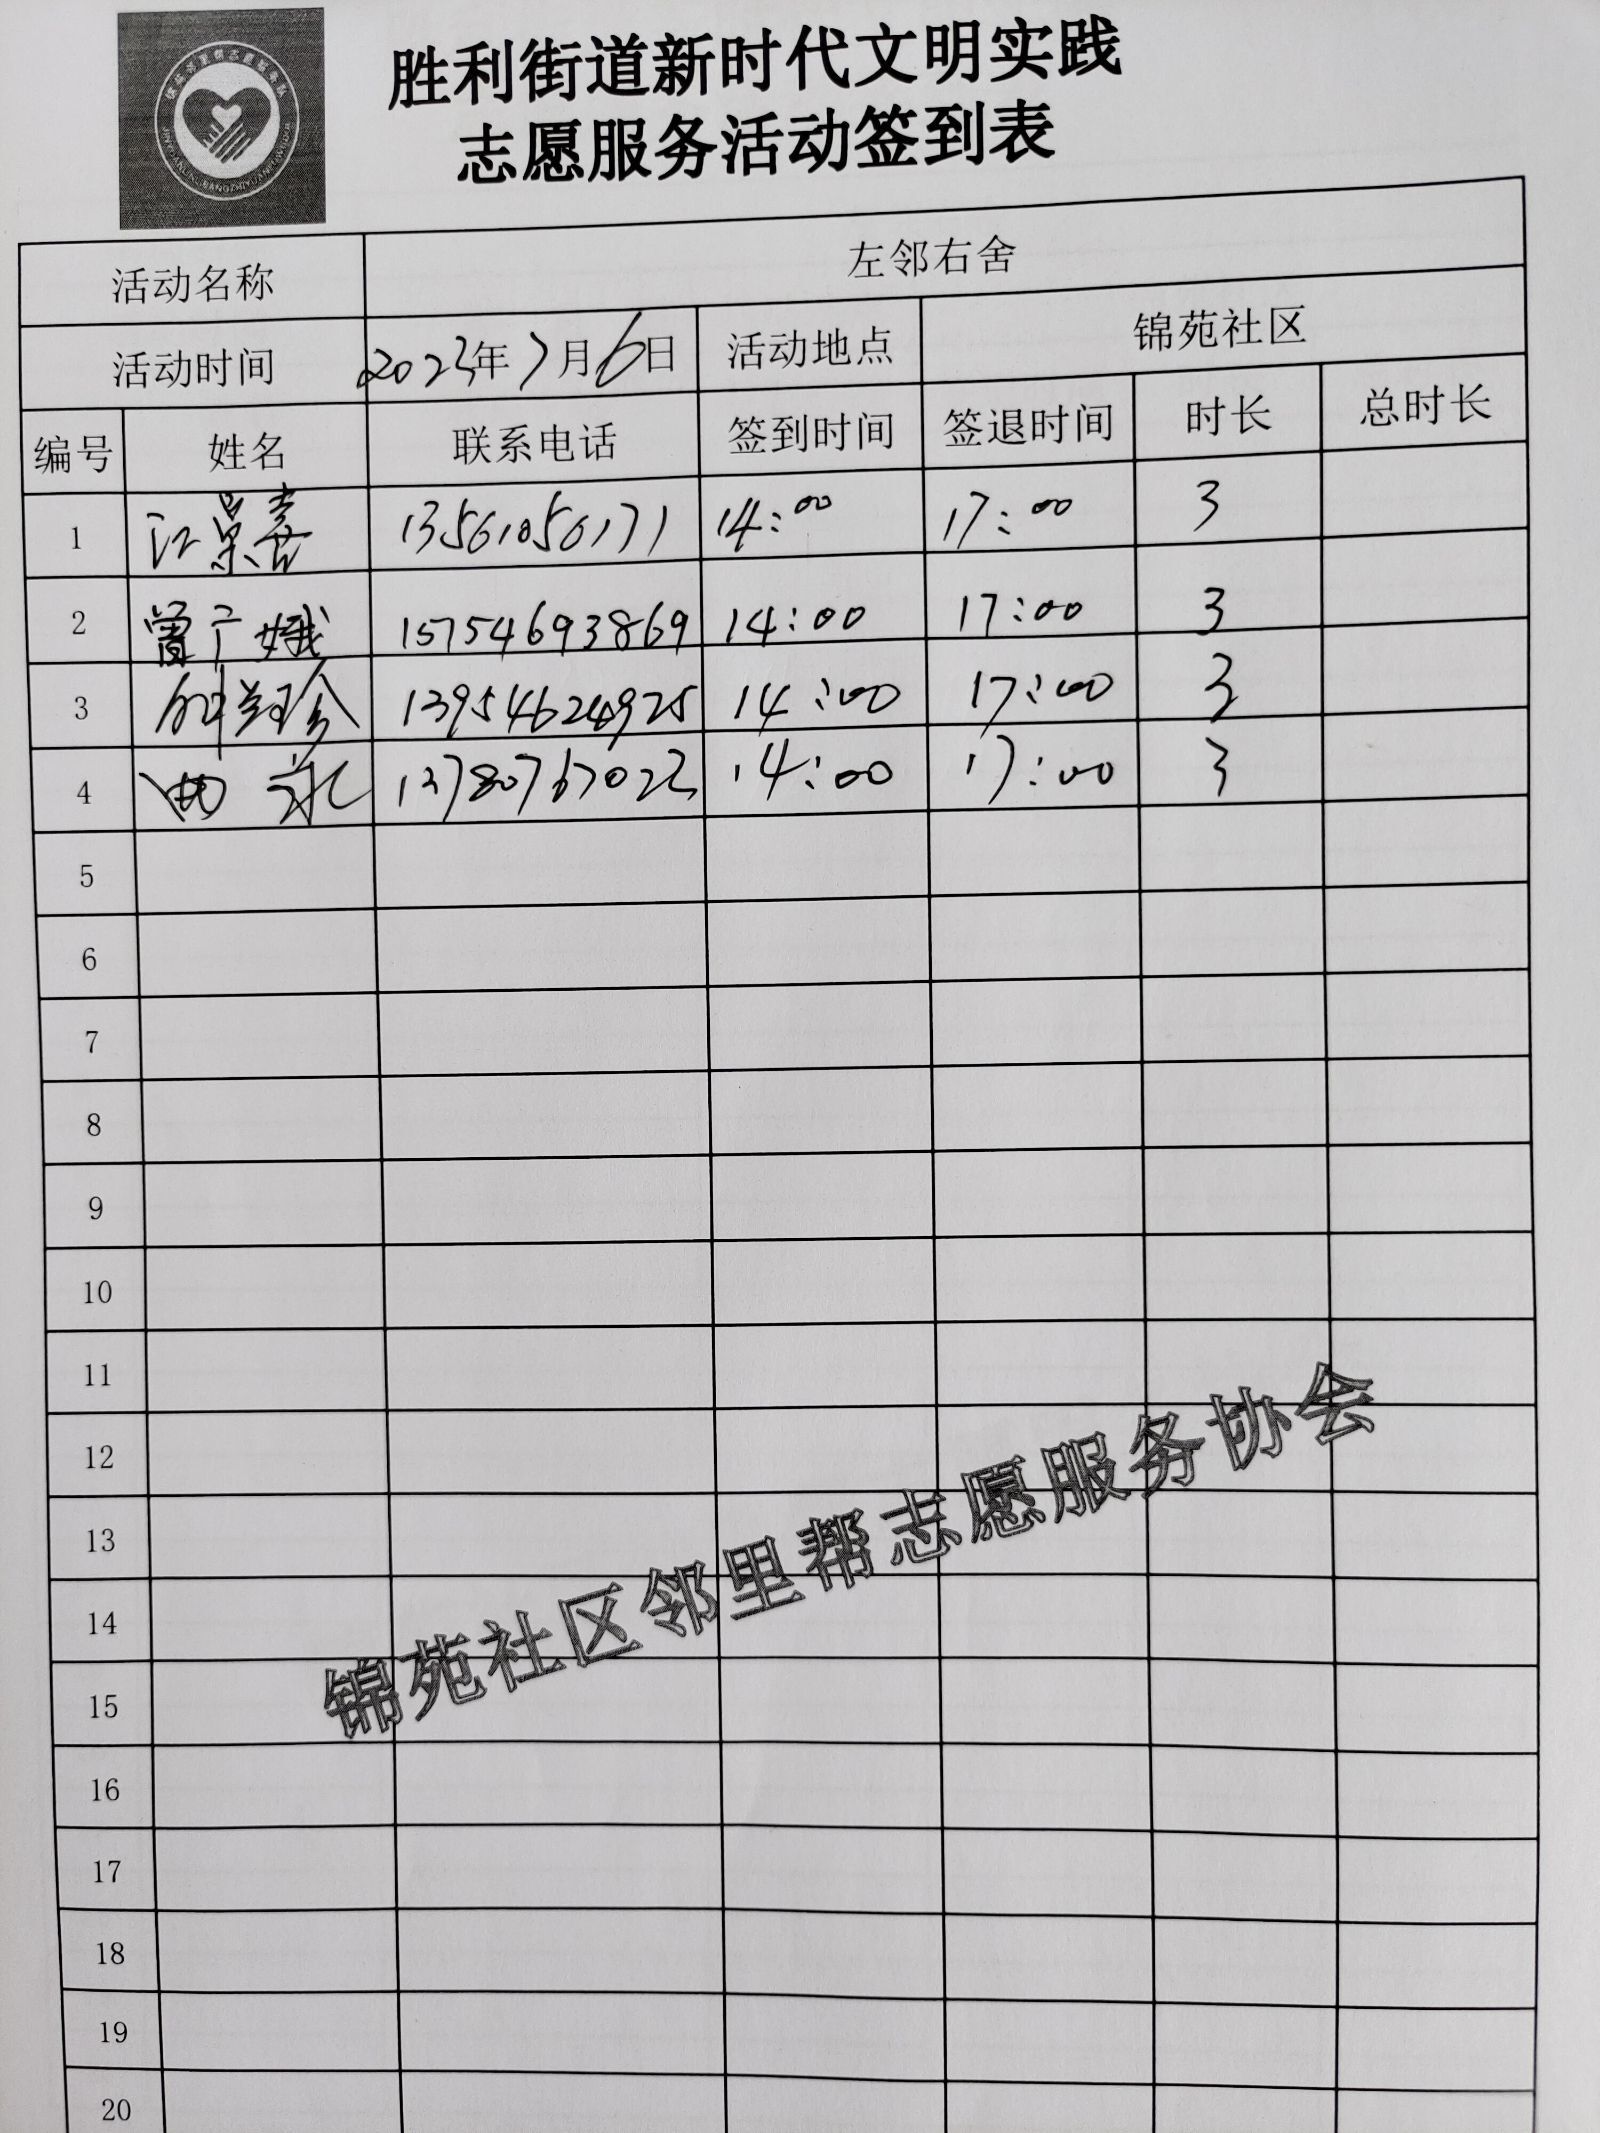 胜利街道新时代文明实践
志愿服务活动签到表
活动名称 左邻右舍
活动时间 2023年7月6日 活动地点 锦苑社区
编号 姓名 联系电话 签到时间 签退时间 时长 总时长
1 江景喜 13561056171 14:00 17:00 3
2 曾广娥 15754693869 14:00 17:00 3
3 13954624925 14:00 17:00 3
4 13780767022 14:00 17:00 3
5
6
7
8
9
10
11
12
13
14
15
16
17
18
19
20
锦苑社区邻里帮志愿服务协会